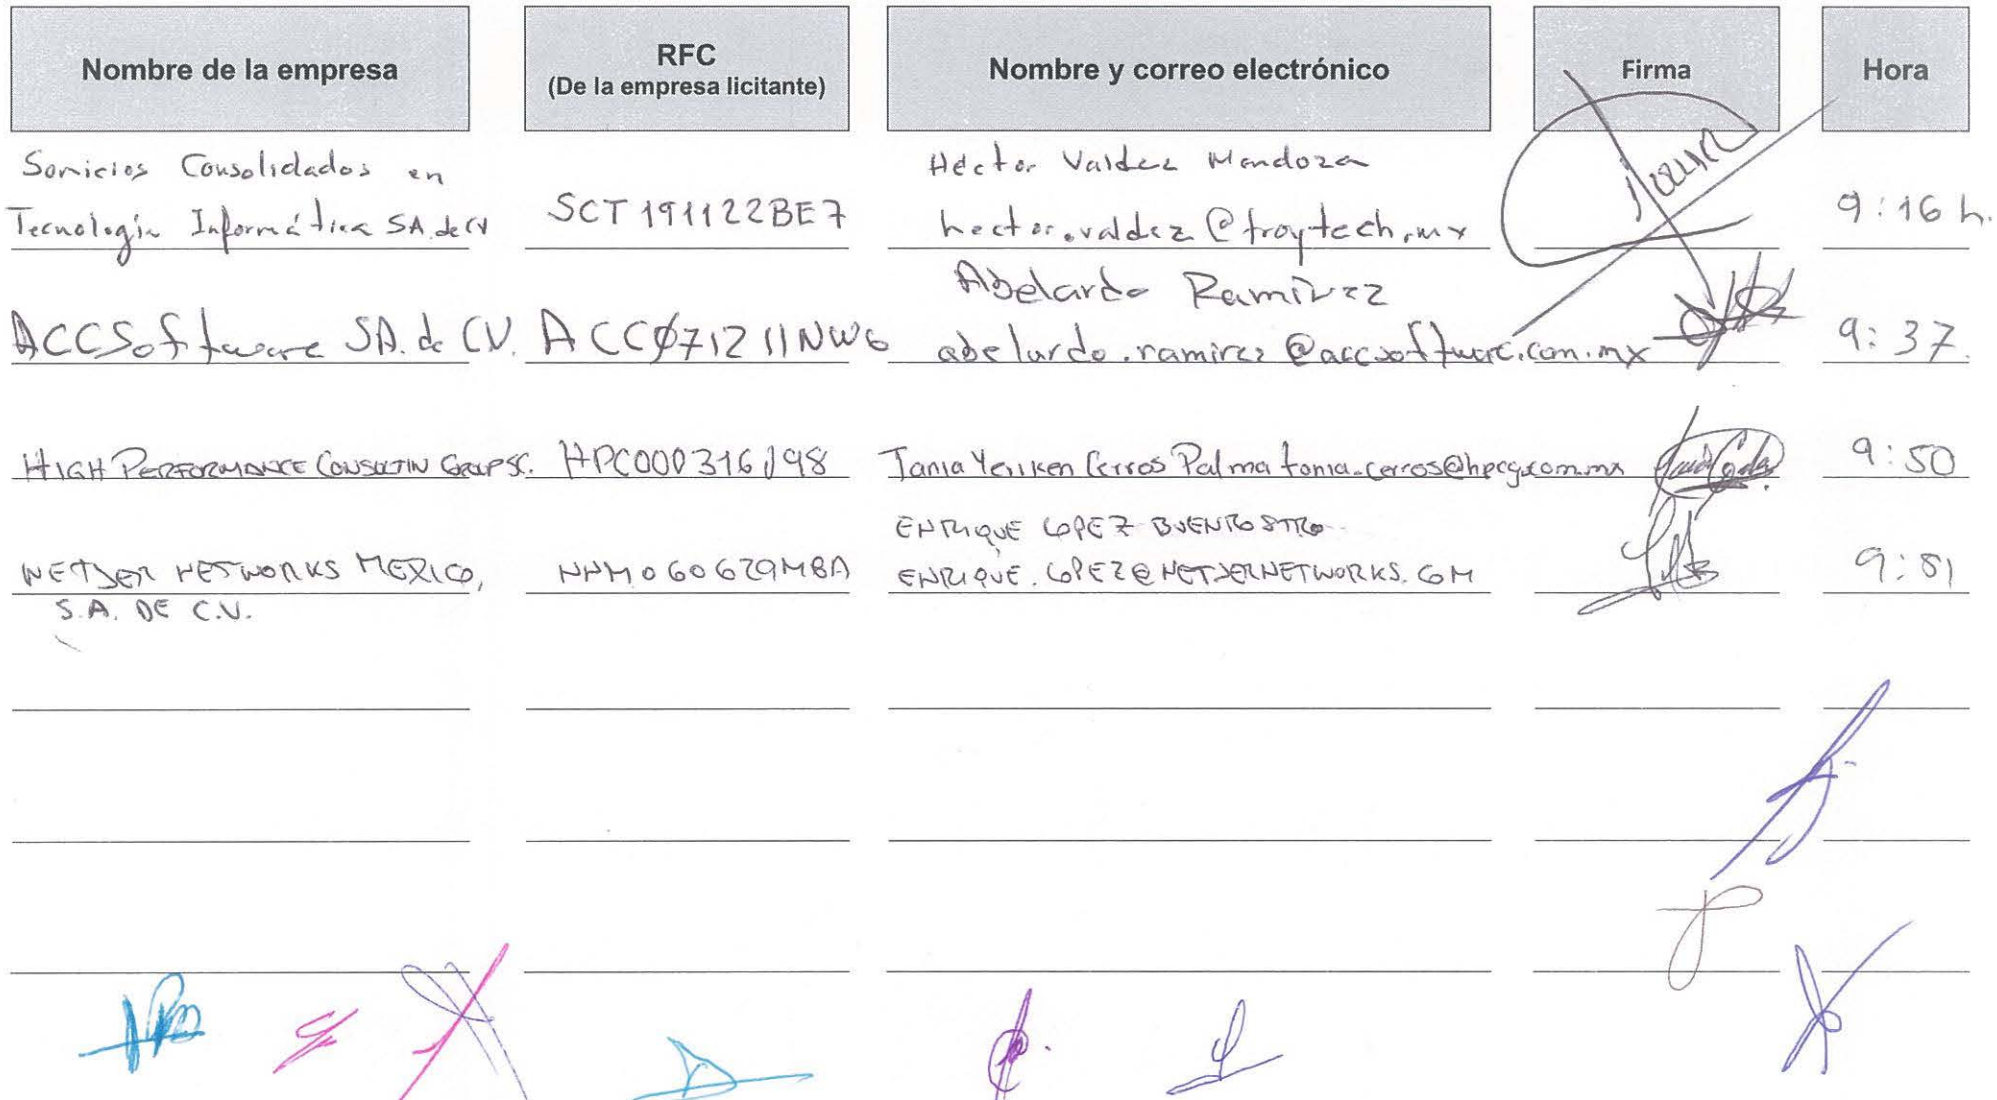 Nombre de la empresa
RFC
(De la empresa licitante)
Nombre y correo electrónico
Firma
Hora
Servicios Consolidados en
Tecnología Informática SA. de CV
SCT191122BE7
Héctor Valdez Mendoza
hector.valdez@troytech.mx
9:16 h.
ACCSoftware SA. de CV.
ACC071211NW6
Abelardo Ramírez
abelardo.ramirez@accsoftware.com.mx
9:37.
HIGH PERFORMANCE CONSULTIN GROUP SC.
HPC000316J98
Tania Yeriken Cerros Palma tania.cerros@hpcg.com.mx
9:50
NETJER NETWORKS MEXICO,
S.A. DE C.V.
NNM060629MBA
ENRIQUE LOPEZ BUENROSTRO
ENRIQUE.LOPEZ@NETJERNETWORKS.COM
9:51